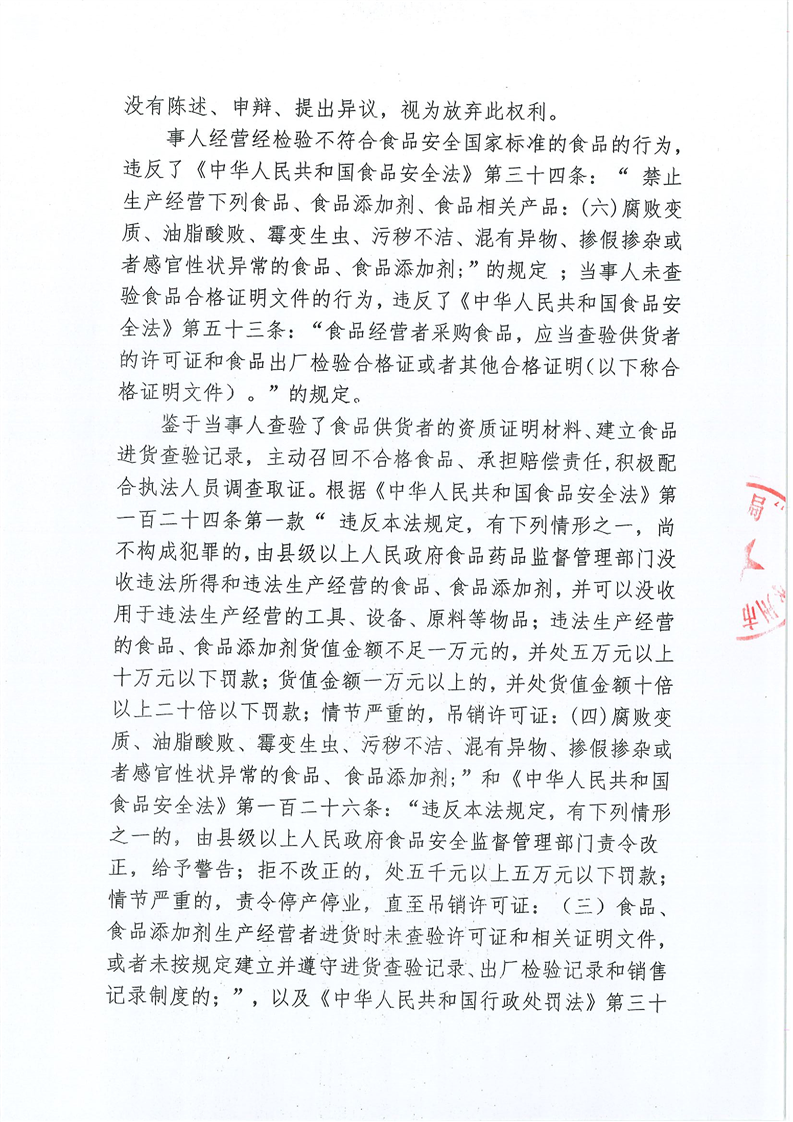 没有陈述、申辩、提出异议，视为放弃此权利。
事人经营经检验不符合食品安全国家标准的食品的行为，
违反了《中华人民共和国食品安全法》第三十四条：“ 禁止
生产经营下列食品、食品添加剂、食品相关产品：(六)腐败变
质、油脂酸败、霉变生虫、污秽不洁、混有异物、掺假掺杂或
者感官性状异常的食品、食品添加剂;”的规定 ；当事人未查
验食品合格证明文件的行为，违反了《中华人民共和国食品安
全法》第五十三条：“食品经营者采购食品，应当查验供货者
的许可证和食品出厂检验合格证或者其他合格证明(以下称合
格证明文件）。”的规定。
鉴于当事人查验了食品供货者的资质证明材料、建立食品
进货查验记录，主动召回不合格食品、承担赔偿责任,积极配
合执法人员调查取证。根据《中华人民共和国食品安全法》第
一百二十四条第一款“ 违反本法规定，有下列情形之一，尚
不构成犯罪的，由县级以上人民政府食品药品监督管理部门没
收违法所得和违法生产经营的食品、食品添加剂，并可以没收
用于违法生产经营的工具、设备、原料等物品；违法生产经营
的食品、食品添加剂货值金额不足一万元的，并处五万元以上
十万元以下罚款；货值金额一万元以上的，并处货值金额十倍
以上二十倍以下罚款；情节严重的，吊销许可证：(四)腐败变
质、油脂酸败、霉变生虫、污秽不洁、混有异物、掺假掺杂或
者感官性状异常的食品、食品添加剂;”和《中华人民共和国
食品安全法》第一百二十六条：“违反本法规定，有下列情形
之一的，由县级以上人民政府食品安全监督管理部门责令改
正，给予警告；拒不改正的，处五千元以上五万元以下罚款；
情节严重的，责令停产停业，直至吊销许可证：（三）食品、
食品添加剂生产经营者进货时未查验许可证和相关证明文件，
或者未按规定建立并遵守进货查验记录、出厂检验记录和销售
记录制度的；”，以及《中华人民共和国行政处罚法》第三十
局
州市